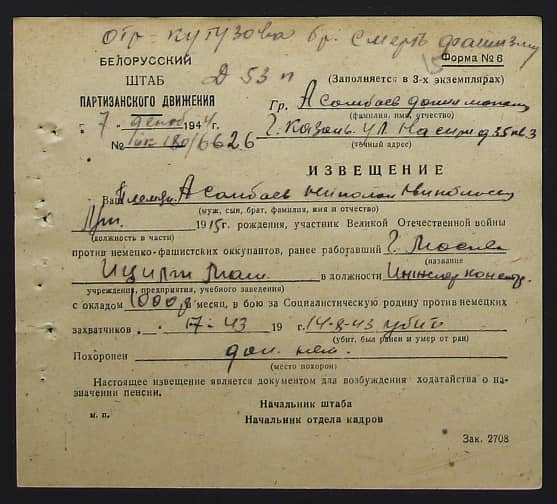 отр-Кутузова бр. Смерть фашизму
БЕЛОРУССКИЙ
Форма № 6
ШТАБ
Д 53 п
(Заполняется в 3-х экземплярах)
ПАРТИЗАНСКОГО ДВИЖЕНИЯ
Гр. Асамбаев
(фамилия, имя, отчество)
„7" декаб 1944 г.
г. Казань. ул. д 35 кв. 3
№ /6626
(точный адрес)
ИЗВЕЩЕНИЕ
Ваш Асамбаев Николай
(муж, сын, брат, фамилия, имя и отчество)
1915 г. рождения, участник Великой Отечественной войны
(должность в части)
против немецко-фашистских оккупантов, ранее работавший г. Москва
(название
в должности Инженер констр.
учреждения, предприятия, учебного заведения)
с окладом 1000 р месяц, в бою за Социалистическую родину против немецких
захватчиков 17-43 19 г. 14-8-43 убит
(убит, был ранен и умер от ран)
Похоронен дан. нет.
(место похорон)
Настоящее извещение является документом для возбуждения ходатайства о на-
значении пенсии.
Начальник штаба
м. п.
Начальник отдела кадров
Зак. 2708